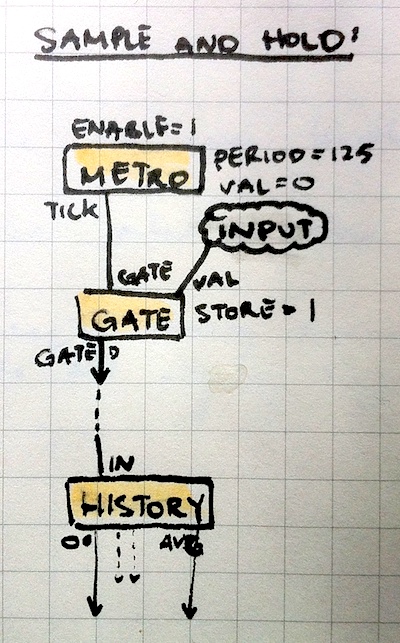 SAMPLE AND HOLD'
ENABLE=1
METRO
PERIOD=125
VAL=0
TICK
INPUT
GATE
VAL
GATE
STORE=1
GATED
IN
HISTORY
AVG